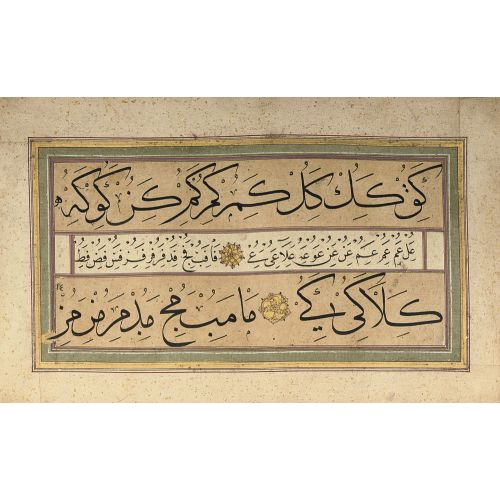 كق كك كل كم كم كم كن كو كه
عل عم عم عم عن عن عو عه علا عى عے فا فب فج فد فر فر فس فص فط
كلا كى كے ما مب مج مد مر مر مر